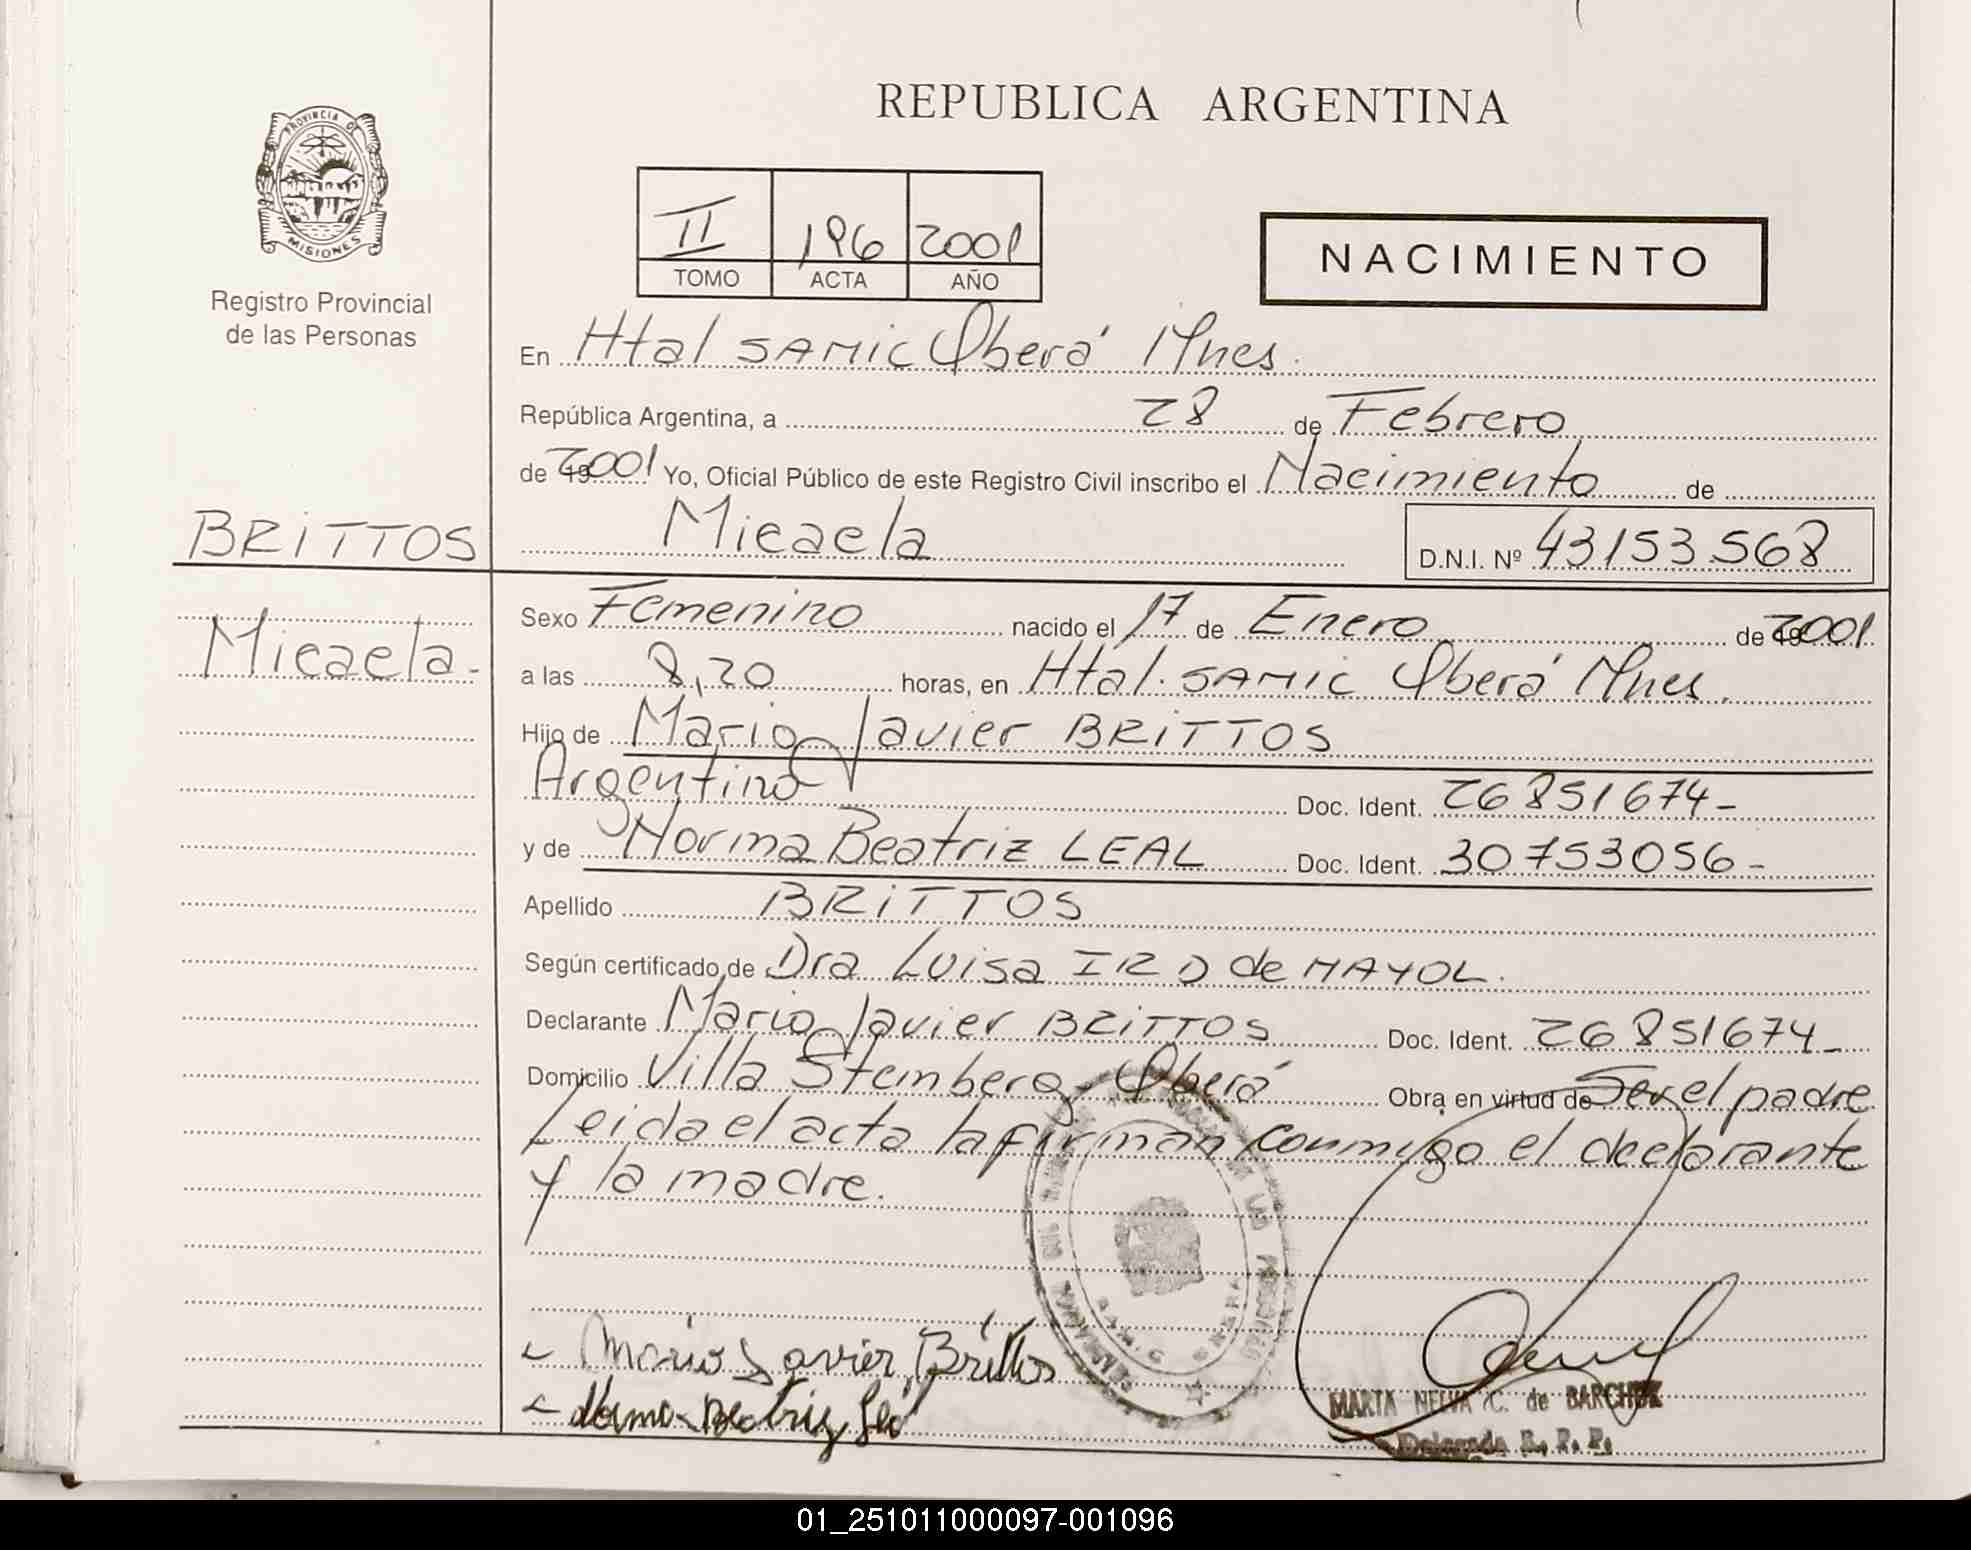 REPUBLICA ARGENTINA
PROVINCIA DE
MISIONES
Registro Provincial
de las Personas
II 196 2001
TOMO ACTA AÑO
NACIMIENTO
En Htal SAMIC Oberá Mnes.
República Argentina, a 28 de Febrero
de 2001 Yo, Oficial Público de este Registro Civil inscribo el Nacimiento de
BRITTOS
Micaela D.N.I. Nº 43153568
Micaela.-
Sexo Femenino nacido el 17 de Enero de 2001
a las 8,20 horas, en Htal. SAMIC Oberá Mnes.
Hijo de Mario Javier BRITTOS
Argentino Doc. Ident. 26851674-
y de Norma Beatriz LEAL Doc. Ident. 30753056-
Apellido BRITTOS
Según certificado de Dra Luisa de MAYOL.
Declarante Mario Javier BRITTOS Doc. Ident. 26851674-
Domicilio Villa Stemberg- Oberá Obra en virtud de Ser el padre
Leida el acta la firman conmigo el declarante
y la madre.
Mario Javier Brittos
Norma Beatriz Leal
MARTA NELVA C. de BARCHUK
Delegada R. P. P.
01_251011000097-001096